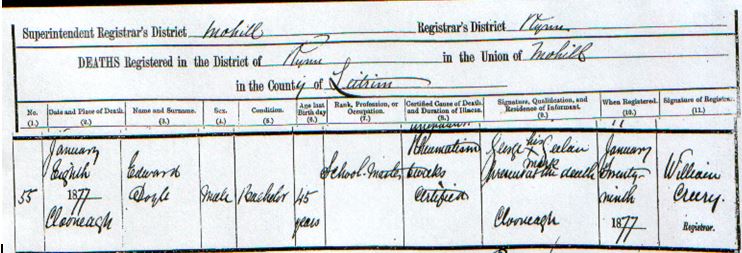 Superintendent Registrar's District Mohill Registrar's District Rynn
DEATHS Registered in the District of Rynn in the Union of Mohill
in the County of Leitrim
No. Date and Place of Death. Name and Surname. Sex. Condition. Age last Birthday Rank, Profession, or Occupation. Certified Cause of Death and Duration of Illness. Signature, Qualification, and Residence of Informant. When Registered. Signature of Registrar.
(1.) (2.) (3.) (4.) (5.) (6.) (7.) (8.) (9.) (10.) (11.)
55
January
Eighth
1877
Clooneagh
Edward
Doyle
Male
Bachelor
45
years
School-Master
Rheumatism
weeks
Certified
George his Geelan
mark
present at the death
Clooneagh
January
Twenty-
ninth
1877
William
Creery.
Registrar.